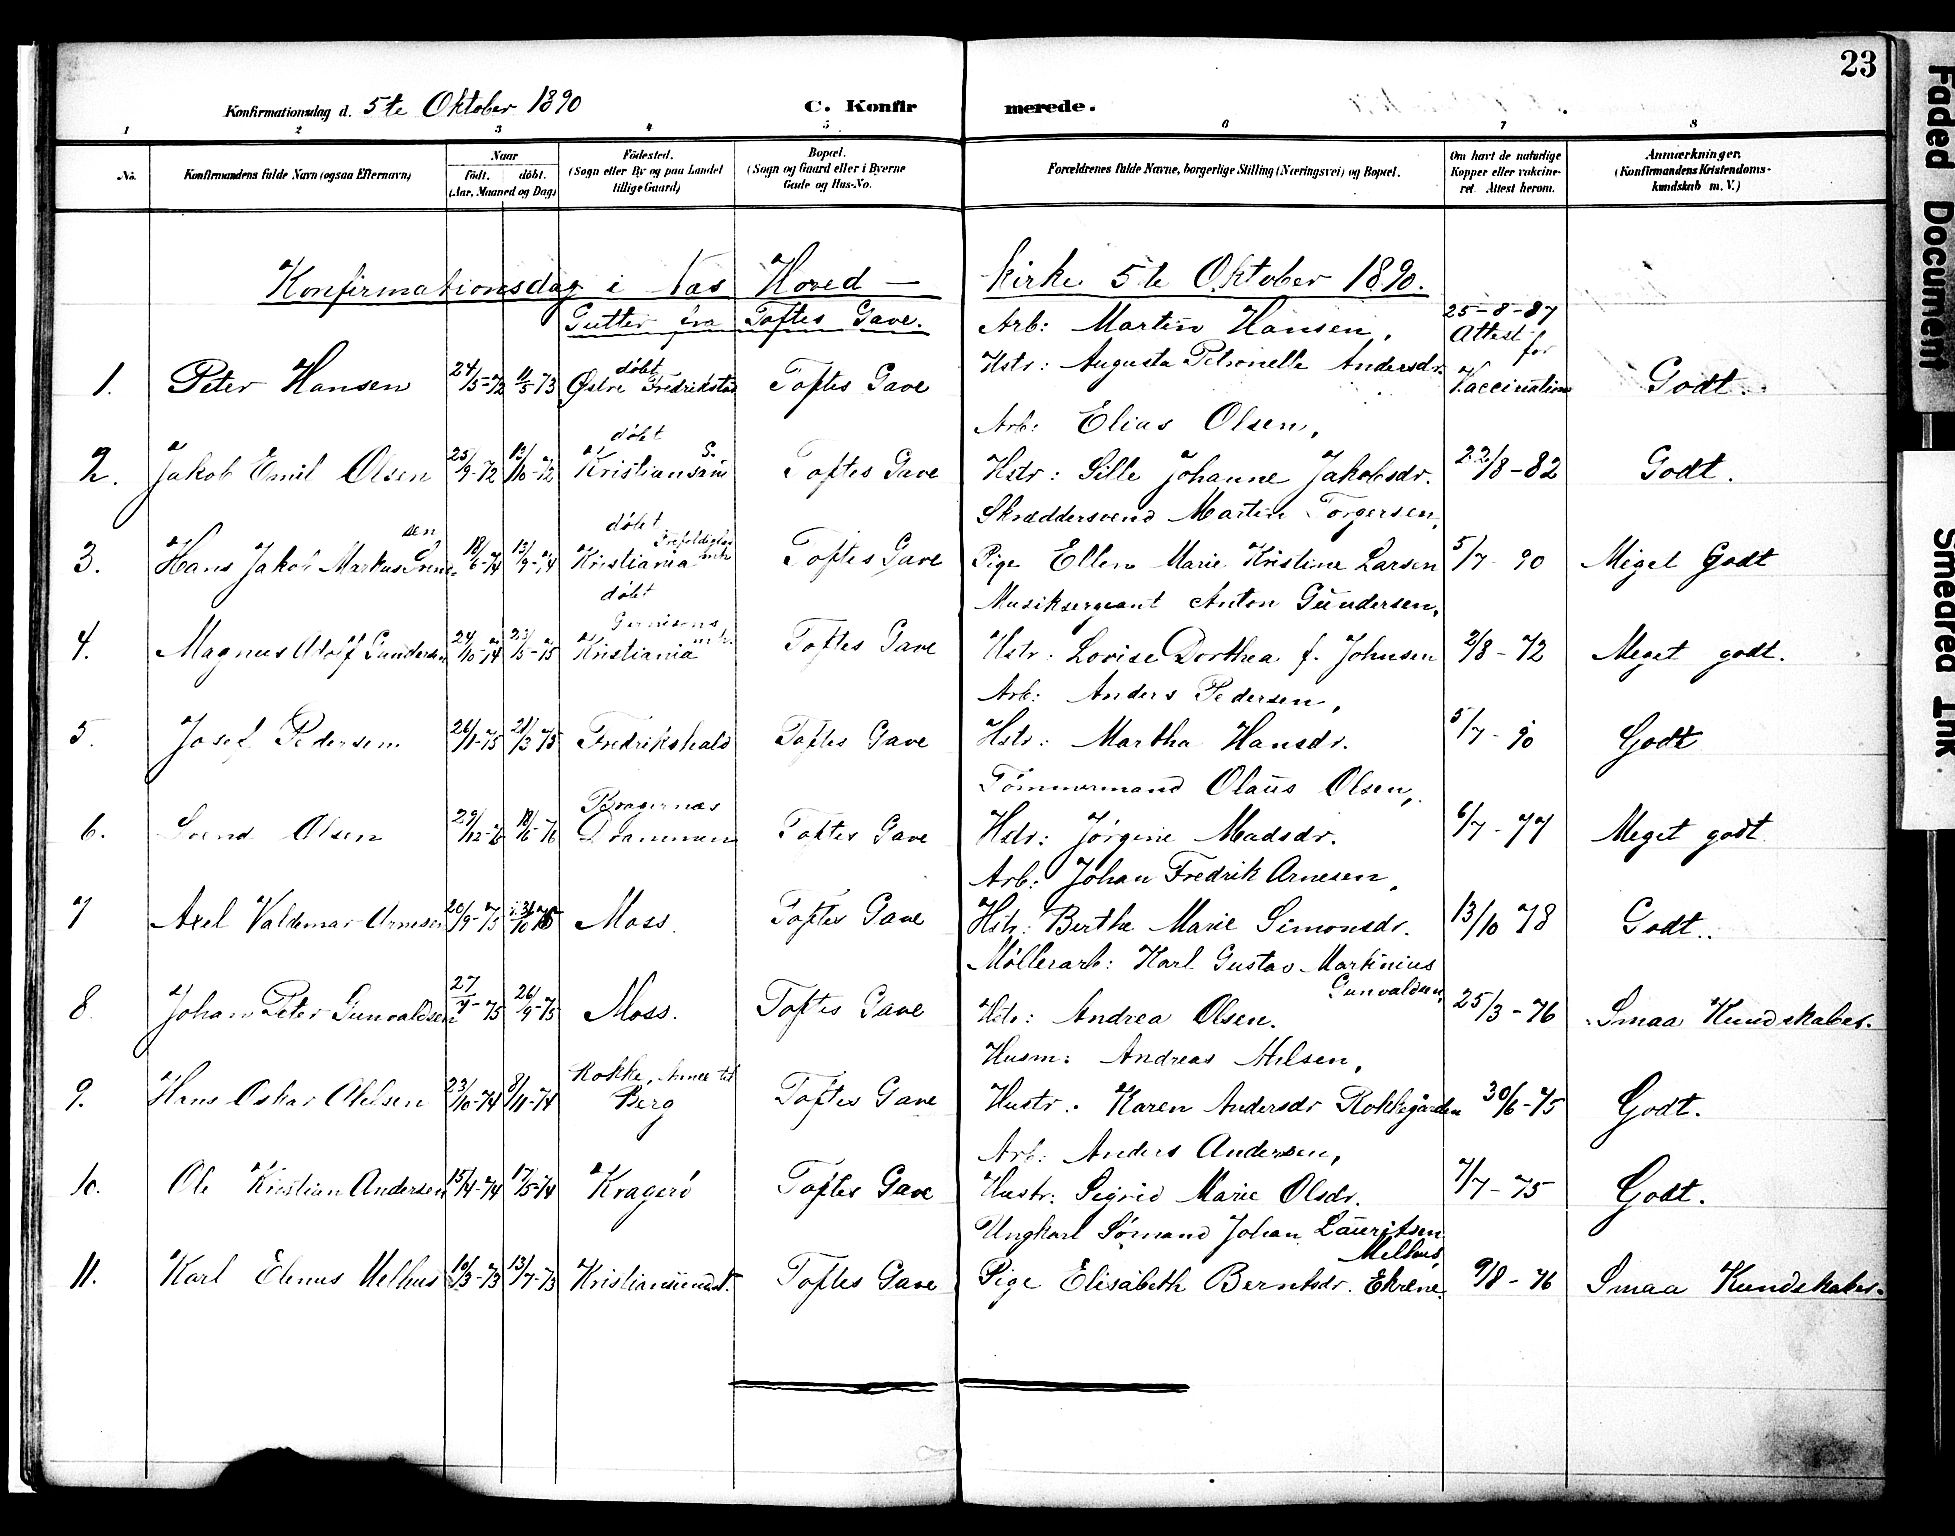 23
Konfirmationsdag d. 5te Oktober 1890 C. Konfirmerede.
1 2 3 4 5 6 7 8
No. Konfirmandens fulde Navn (ogsaa Efternavn) Naar født. døbt. (Aar, Maaned og Dag) Fødested. (Sogn eller By og paa Landet tillige Gaard) Bopæl. (Sogn og Gaard eller i Byerne Gade og Hus-No. Forældrenes fulde Navne, borgerlige Stilling (Næringsvei) og Bopæl. Om havt de naturlige Kopper eller vakcineret. Attest herom. Anmærkninger. (Konfirmandens Kristendomskundskab m. V.)
Konfirmationsdag i Næs Hoved – kirke 5te Oktober 1890.
Gutter fra Toftes Gave.
Arb: Martin Hansen, 25-8-87 Attest for Vaccination
1. Peter Hansen 24/5-72 11/5 73 døbt Østre Fredrikstad Toftes Gave Hstr: Augusta Petronelle Andersdr. Godt.
Arb: Elias Olsen,
2. Jakob Emil Olsen 25/9-72 13/10-72 døbt Kristianssand S. Toftes Gave Hstr: Sille Johanne Jakobsdr. 22/8-82 Godt.
Skræddersvend Martin Torgersen,
3. Hans Jakob Markus 18/6-74 13/9-74 døbt Trefoldigh Kristiania Toftes Gave Pige Ellen Marie Kristine Larsen 5/7-90 Miget Godt
Musiksergeant Anton Gundersen,
4. Magnus Adolf Gundersen 24/10-74 23/5-75 døbt Garnisons Kristiania Toftes Gave Hstr: Lovise Dorthea f. Johnsen 2/8-72 Meget godt.
Arb: Anders Pedersen,
5. Josef Pedersen 26/1-75 21/3 75 Fredrikshald Toftes Gave Hstr: Martha Hansdr. 5/7-90 Godt
Tømmermand Olaus Olsen,
6. Svend Olsen 29/12-75 18/6-76 Bragernæs Drammen Toftes Gave Hstr: Jørgine Madsdr. 6/7-77 Meget godt
Arb: Johan Fredrik Arnesen,
7 Axel Valdemar Arnesen 20/9-75 31/10 75 Moss. Toftes Gave Hstr: Berthe Marie Simonsdr. 13/10 78 Godt.
Møllerarb: Karl Gustav Martinius Gunvaldsen,
8. Johan Peter Gunvaldsen 27/7-75 26/9-75 Moss. Toftes Gave Hstr: Andrea Olsen. 25/3-76 Smaa Kundskaber.
Husm: Andreas Nilsen,
9. Hans Oskar 23/10-74 8/11-74 Rokke, Berg Toftes Gave Hustr: Karen Andersdr Rokkegården 30/6-75 Godt.
Arb: Anders Andersen,
10. Ole Kristian Andersen 15/4-74 17/5-74 Kragerö Toftes Gave Hustr: Sigrid Marie Olsdr. 7/7-75 Godt.
Ungkarl Sømand Johan Lauritsen Melhus,
11. Karl Elenus Melhus 10/3-73 13/7-73 Kristianssund Toftes Gave Pige Elisabeth Berntsdr. Ekrene. 9/8-76 Smaa Kundskaber.
Faded Document
Smeared Ink